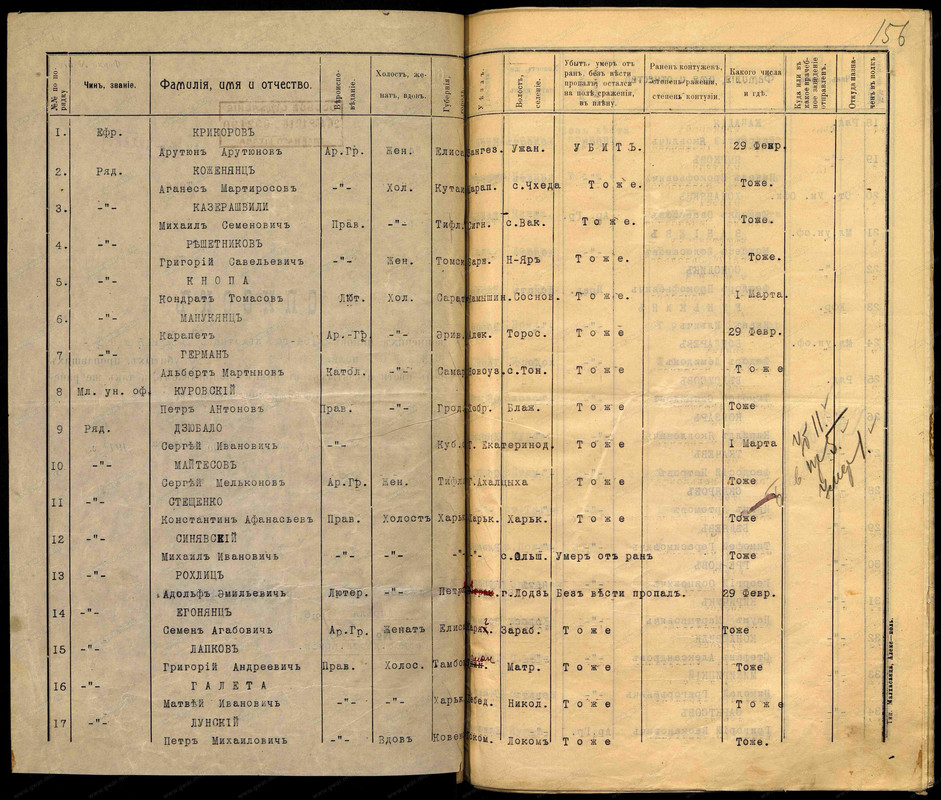 156
№№ по по-
рядку
Чинъ, званіе.
Фамилія, имя и отчество.
Вѣроиспо-
вѣданіе.
Холостъ, же-
натъ, вдовъ.
Губернія,
Уѣздъ.
Волость,
селеніе.
Убитъ, умеръ отъ
ранъ, безъ вѣсти
пропалъ, остался
на полѣ сраженія,
въ плѣну.
Раненъ, контуженъ,
степень раненія,
степень контузіи.
Какого числа
и гдѣ.
Куда или въ
какое врачеб-
ное заведеніе
отправленъ.
Откуда назна-
ченъ въ полкъ
1. Ефр. КРИКОРОВЪ
Арутюнъ Арутюновъ Ар.Гр. Жен. Елиса Зангез. Ужан. УБИТЪ. 29 Февр.
2. Ряд. КОЖЕНЯНЦЪ
Аганесъ Мартиросовъ -"- Хол. Кутаи Шарап. с.Чхеда Тоже. Тоже.
3. -"- КАЗЕРАШВИЛИ
Михаилъ Семеновичъ Прав. -"- Тифл. Сигн. с.Вак. Тоже. Тоже.
4. -"- РѢШЕТНИКОВЪ
Григорій Савельевичъ -"- Жен. Томск Барн. Н-Яръ Тоже. Тоже.
5. -"- КНОПА
Кондратъ Томасовъ Лют. Хол. Сарат Камышин. Соснов. Тоже. 1 Марта.
6. -"- МАНУКЯНЦЪ
Карапетъ Ар.-Гр. -"- Эрив. Алек. Торос. Тоже 29 Февр.
7 -"- ГЕРМАНЪ
Альбертъ Мартыновъ Катол. -"- Самар Новоуз. с.Тон. Тоже Тоже
8 Мл. ун. оф. КУРОВСКІЙ
Петръ Антоновъ Прав. -"- Грод. Кобр. Блаж. Тоже Тоже
9 Ряд. ДЗЮБАЛО
Сергѣй Ивановичъ -"- Куб. Г. Екатеринод. Тоже 1 Марта
10 -"- МАЙТЕСОВЪ
Сергѣй Мельконовъ Ар.Гр. Жен. Тифл. Г.Ахалцыха Тоже Тоже
11 -"- СТЕЦЕНКО
Константинъ Афанасьевъ Прав. Холостъ Харьк Харьк. Харьк. Тоже Тоже
12 -"- СИНЯВСКІЙ
Михаилъ Ивановичъ -"- -"- -"- -"- с.Ольш. Умеръ отъ ранъ Тоже
13 -"- РОХЛИЦЪ
Адольфъ Эмильевичъ Лютер. -"- Петр г.Лодзь Безъ вѣсти пропалъ. 29 Февр.
14 -"- ЕГОНЯНЦЪ
Семенъ Агабовичъ Ар.Гр. Женатъ Елиса Зараб. Тоже Тоже
15 -"- ЛАПКОВЪ
Григорій Андреевичъ Прав. Холос. Тамбов Матр. Тоже Тоже
16 -"- ГАЛЕТА
Матвѣй Ивановичъ -"- -"- Харьк Лебед. Никол. Тоже Тоже
17 -"- ЛУНСКІЙ
Петръ Михаиловичъ -"- Вдовъ Ковен Локомъ Тоже Тоже.